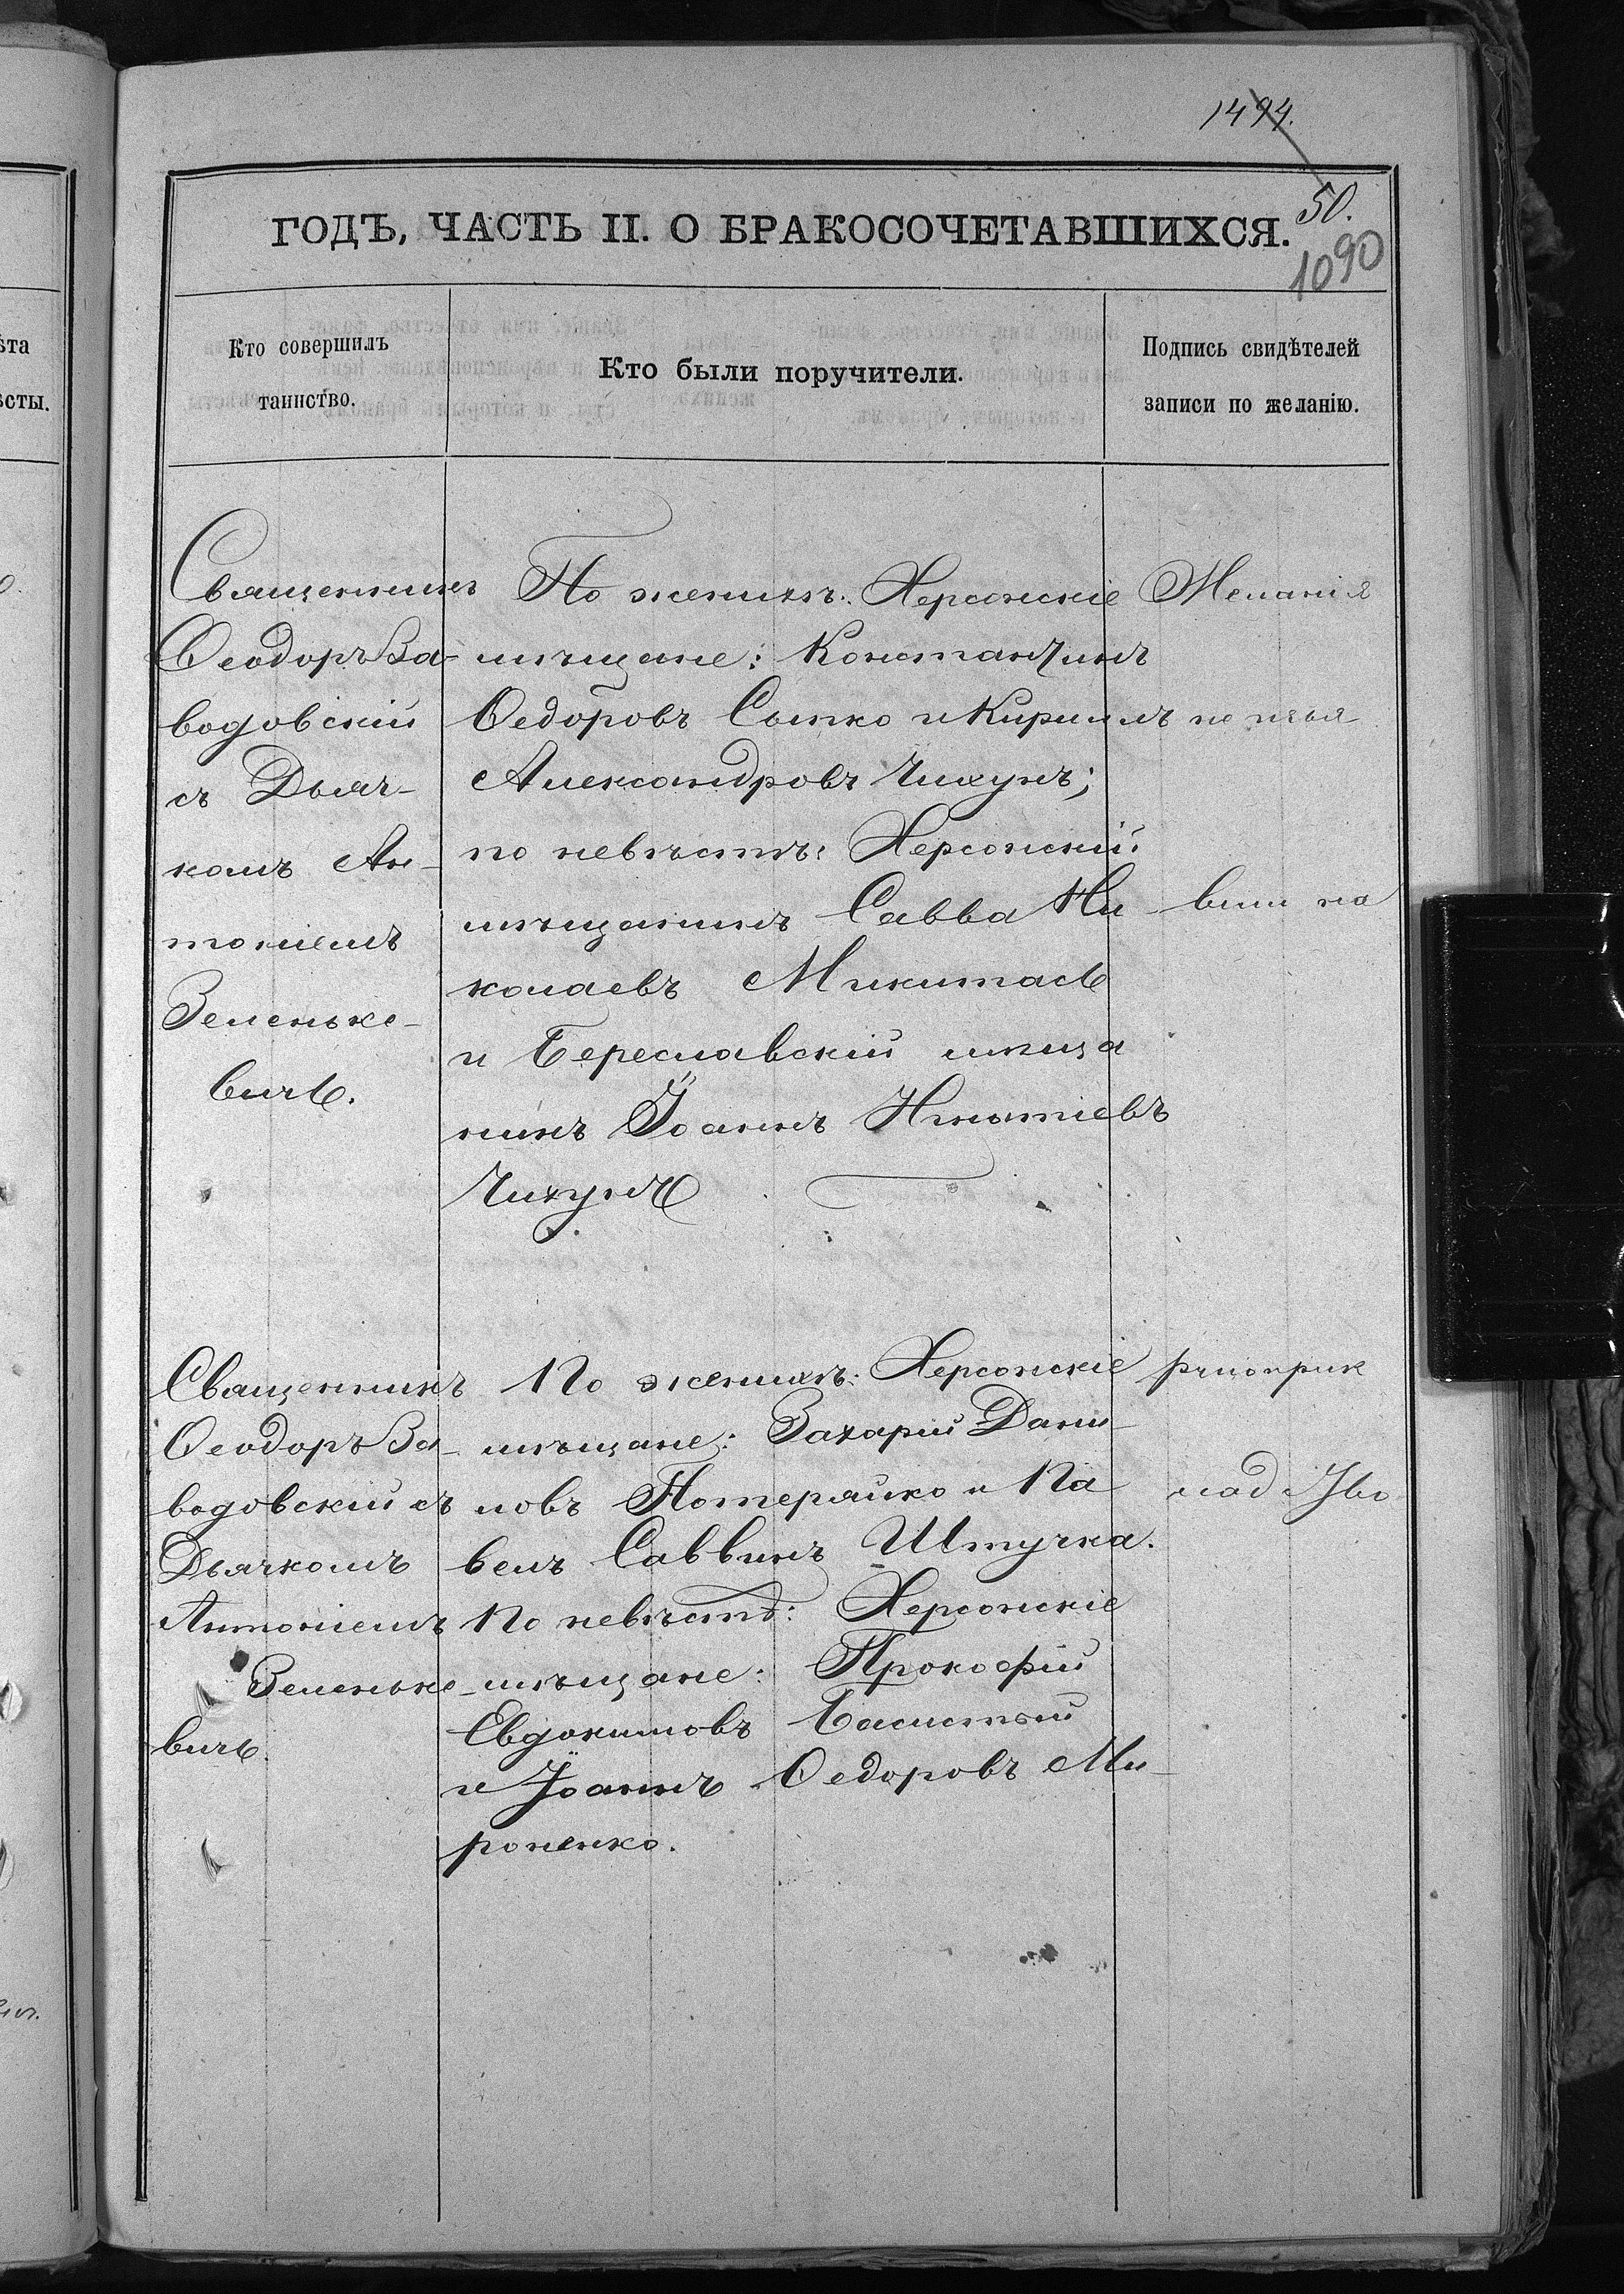 1494.
50.
1090
ГОДЪ, ЧАСТЬ II. О БРАКОСОЧЕТАВШИХСЯ.
Кто совершилъ
таинство.
Кто были поручители.
Подпись свидѣтелей
записи по желанію.
Священникъ
Ѳеодоръ За-
водовскій
съ Дьяч-
комъ Ан-
тоніемъ
Зеленьке-
вичъ.
По женихѣ: Херсонскіе
мѣщане: Константинъ
Ѳедоровъ Сытко и Кириллъ
Александровъ Чихунъ;
по невѣстѣ: Херсонскій
мѣщанинъ Савва Ни-
колаевъ Микитасъ
и Береславскій мѣща
нинъ Іоаннъ Игнатіевъ
Чихунъ
Желанія
не изъя
вили на
Священникъ
Ѳеодоръ За-
водовскій съ
Дьячкомъ
Антоніемъ
Зеленьке-
вичъ.
По женихѣ: Херсонскіе
мѣщане: Захарій Дани-
ловъ Потеряйко и Па
велъ Саввинъ Штучка.
По невѣстѣ: Херсонскіе
мѣщане: Прокофій
Евдокимовъ Басистый
и Іоаннъ Ѳедоровъ Ми-
роненко.
ѣта
ѣсты.